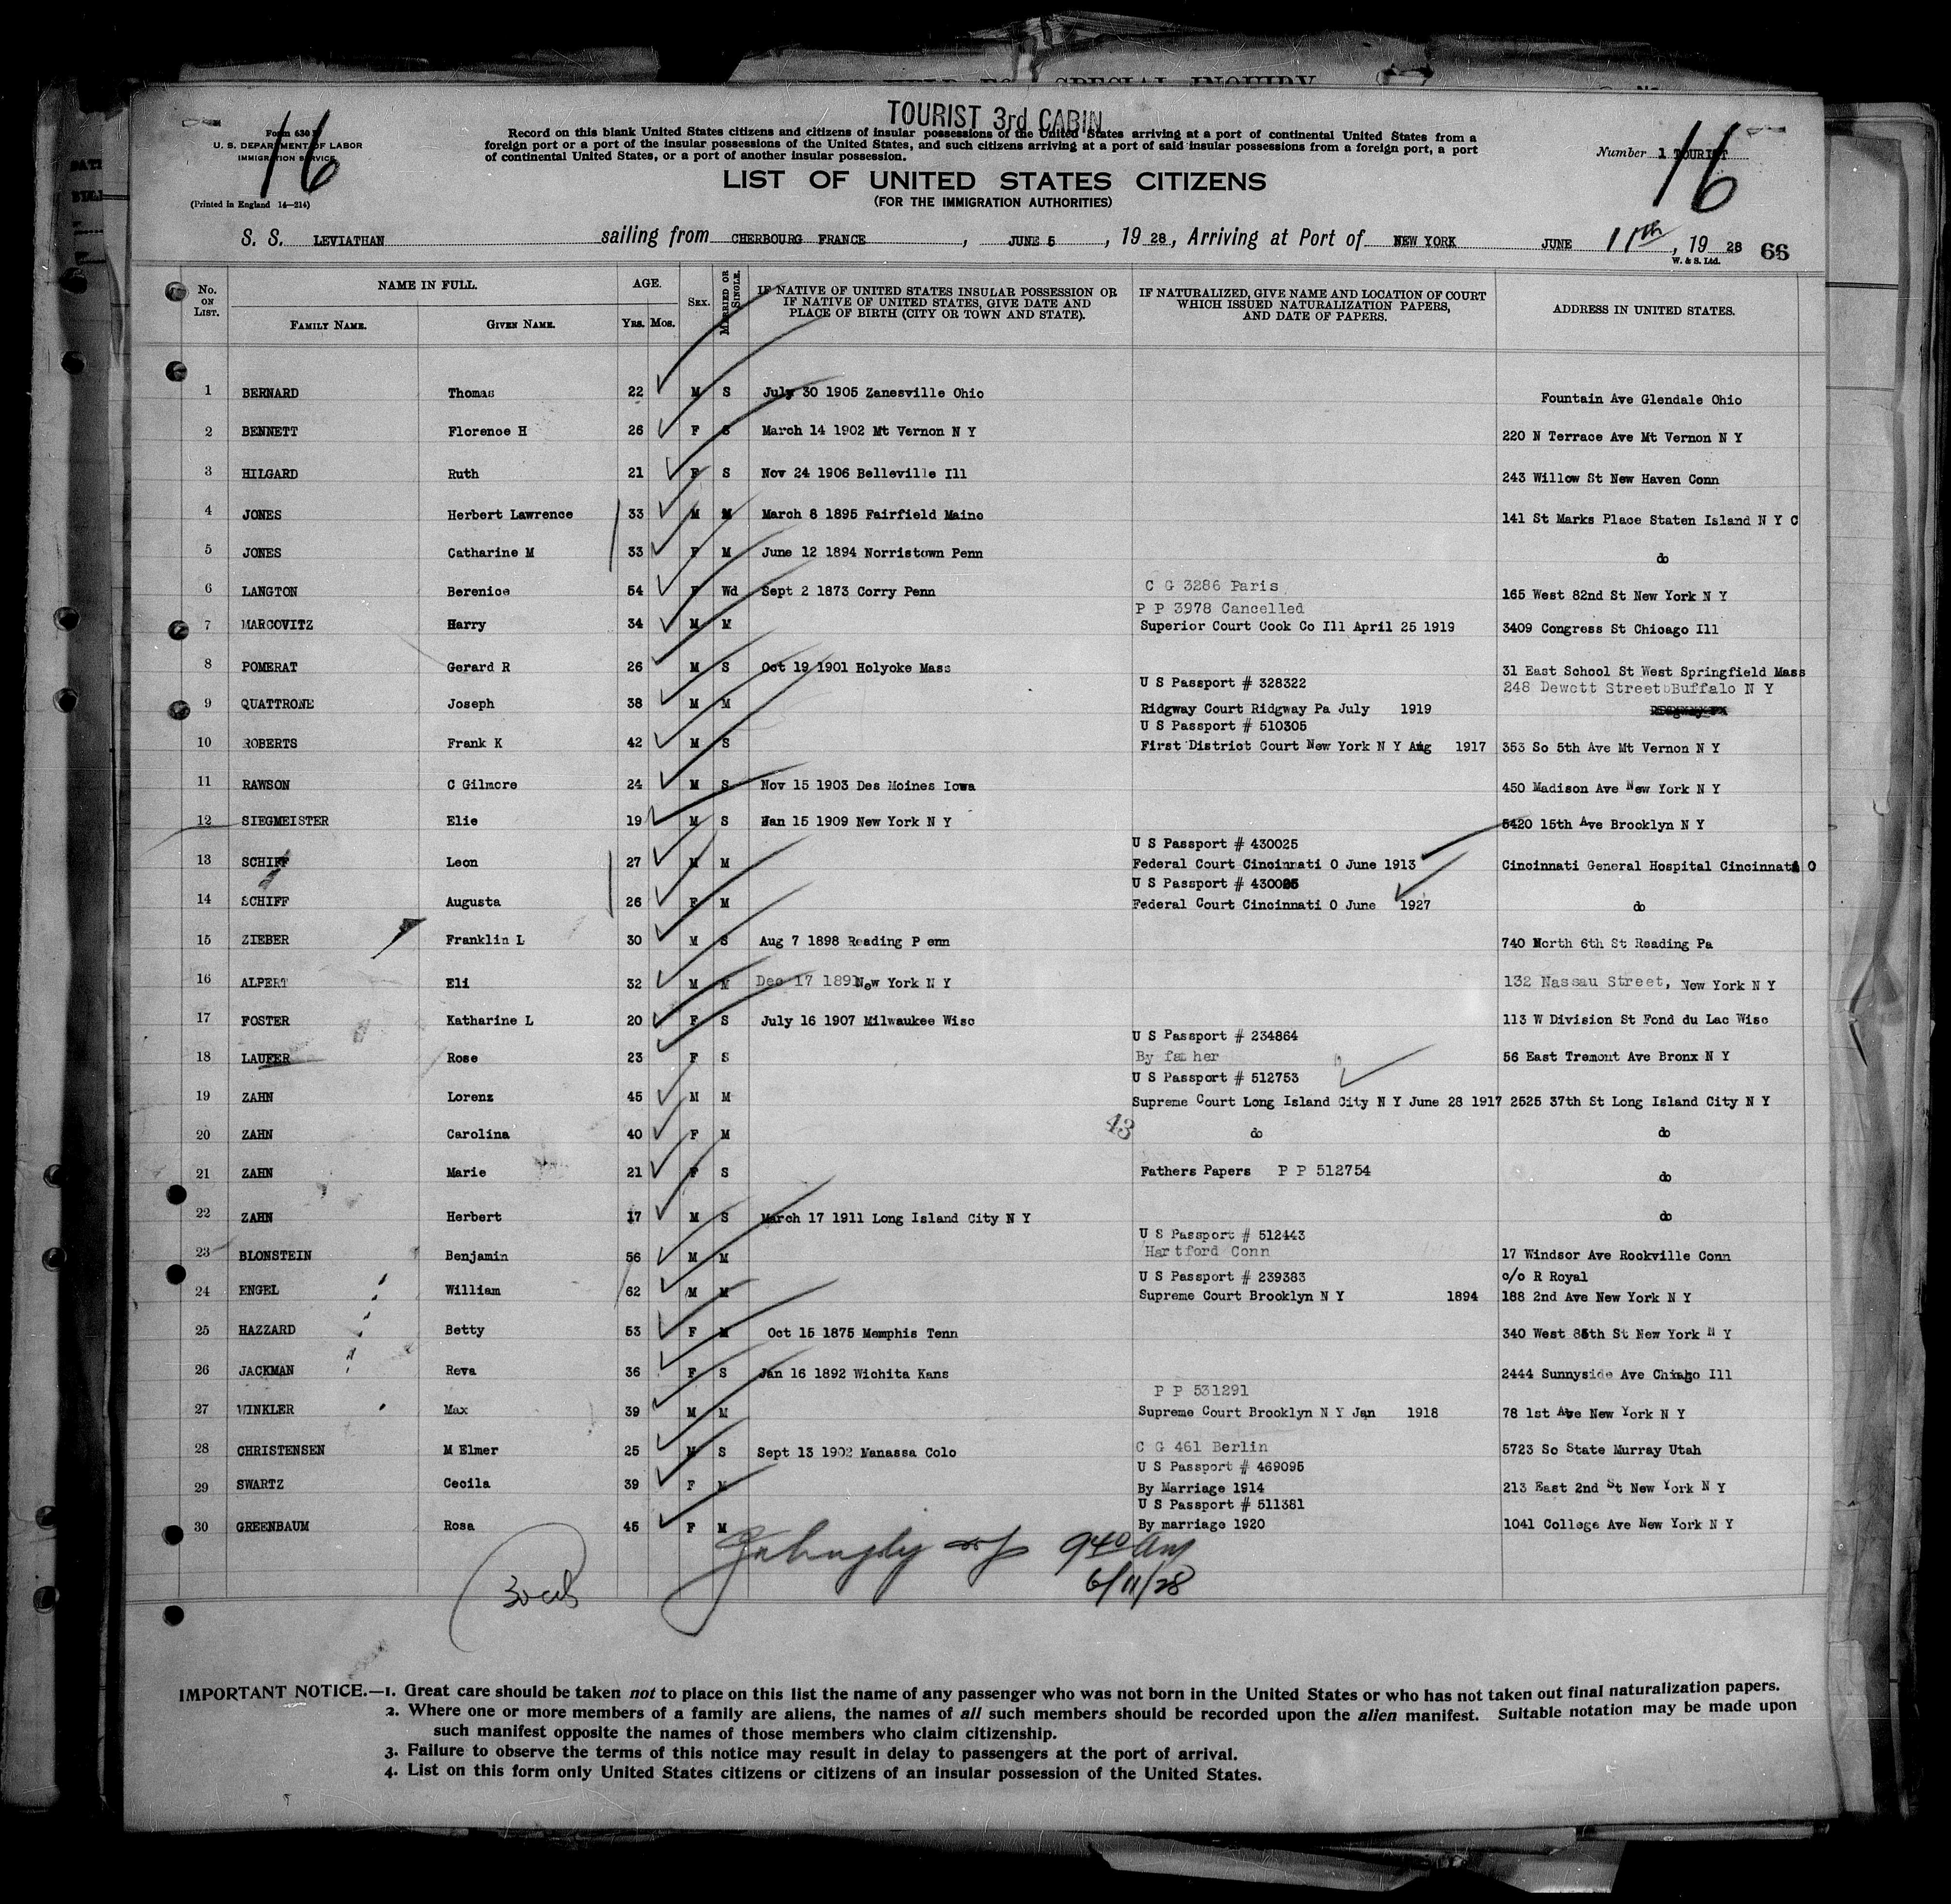 TOURIST 3rd CABIN
Form 630
U. S. DEPARTMENT OF LABOR
IMMIGRATION SERVICE
(Printed in England 14—214)
16
Record on this blank United States citizens and citizens of insular possessions of the United States arriving at a port of continental United States from a
foreign port or a port of the insular possessions of the United States, and such citizens arriving at a port of said insular possessions from a foreign port, a port
of continental United States, or a port of another insular possession.
Number 1 TOURIST
16
LIST OF UNITED STATES CITIZENS
(FOR THE IMMIGRATION AUTHORITIES)
S. S. LEVIATHAN sailing from CHERBOURG FRANCE, JUNE 5, 1928, Arriving at Port of NEW YORK JUNE 11th, 1928 66
W. & S. Ltd.
No. ON LIST. NAME IN FULL. AGE. SEX. MARRIED OR SINGLE. IF NATIVE OF UNITED STATES INSULAR POSSESSION OR IF NATIVE OF UNITED STATES, GIVE DATE AND PLACE OF BIRTH (CITY OR TOWN AND STATE). IF NATURALIZED, GIVE NAME AND LOCATION OF COURT WHICH ISSUED NATURALIZATION PAPERS, AND DATE OF PAPERS. ADDRESS IN UNITED STATES.
FAMILY NAME. GIVEN NAME. YRS. MOS.
1 BERNARD Thomas 22 M S July 30 1905 Zanesville Ohio Fountain Ave Glendale Ohio
2 BENNETT Florence H 26 F S March 14 1902 Mt Vernon N Y 220 N Terrace Ave Mt Vernon N Y
3 HILGARD Ruth 21 F S Nov 24 1906 Belleville Ill 243 Willow St New Haven Conn
4 JONES Herbert Lawrence 33 M M March 8 1895 Fairfield Maine 141 St Marks Place Staten Island N Y C
5 JONES Catharine M 33 F M June 12 1894 Norristown Penn do
6 LANGTON Berenice 54 F Wd Sept 2 1873 Corry Penn C G 3286 Paris 165 West 82nd St New York N Y
P P 3978 Cancelled
7 MARCOVITZ Harry 34 M M Superior Court Cook Co Ill April 25 1919 3409 Congress St Chicago Ill
8 POMERAT Gerard R 26 M S Oct 19 1901 Holyoke Mass 31 East School St West Springfield Mass
U S Passport # 328322 248 Dewett Street Buffalo N Y
9 QUATTRONE Joseph 38 M M Ridgway Court Ridgway Pa July 1919
U S Passport # 510305
10 ROBERTS Frank K 42 M S First District Court New York N Y Aug 1917 353 So 5th Ave Mt Vernon N Y
11 RAWSON C Gilmore 24 M S Nov 15 1903 Des Moines Iowa 450 Madison Ave New York N Y
12 SIEGMEISTER Elie 19 M S Jan 15 1909 New York N Y 5420 15th Ave Brooklyn N Y
U S Passport # 430025
13 SCHIFF Leon 27 M M Federal Court Cincinnati O June 1913 Cincinnati General Hospital Cincinnati O
U S Passport # 430025
14 SCHIFF Augusta 26 F M Federal Court Cincinnati O June 1927 do
15 ZIEBER Franklin L 30 M S Aug 7 1898 Reading P enn 740 North 6th St Reading Pa
16 ALPERT Eli 32 M M Dec 17 1891 New York N Y 132 Nassau Street, New York N Y
17 FOSTER Katharine L 20 F S July 16 1907 Milwaukee Wisc 113 W Division St Fond du Lac Wisc
U S Passport # 234864
18 LAUFER Rose 23 F S By father 56 East Tremont Ave Bronx N Y
U S Passport # 512753
19 ZAHN Lorenz 45 M M Supreme Court Long Island City N Y June 28 1917 2525 37th St Long Island City N Y
43
20 ZAHN Carolina 40 F M do do
21 ZAHN Marie 21 F S Fathers Papers P P 512754 do
22 ZAHN Herbert 17 M S March 17 1911 Long Island City N Y do
U S Passport # 512443
23 BLONSTEIN Benjamin 56 M M Hartford Conn 17 Windsor Ave Rockville Conn
U S Passport # 239383 c/o R Royal
24 ENGEL William 62 M M Supreme Court Brooklyn N Y 1894 188 2nd Ave New York N Y
25 HAZZARD Betty 53 F M Oct 15 1875 Memphis Tenn 340 West 85th St New York N Y
26 JACKMAN Reva 36 F S Jan 16 1892 Wichita Kans 2444 Sunnyside Ave Chiago Ill
P P 531291
27 WINKLER Max 39 M M Supreme Court Brooklyn N Y Jan 1918 78 1st Ave New York N Y
28 CHRISTENSEN M Elmer 25 M S Sept 13 1902 Manassa Colo C G 461 Berlin 5723 So State Murray Utah
U S Passport # 469095
29 SWARTZ Cecila 39 F M By Marriage 1914 213 East 2nd St New York N Y
U S Passport # 511381
30 GREENBAUM Rosa 45 F M By marriage 1920 1041 College Ave New York N Y
940 am
6/11/28
IMPORTANT NOTICE.—1. Great care should be taken not to place on this list the name of any passenger who was not born in the United States or who has not taken out final naturalization papers.
2. Where one or more members of a family are aliens, the names of all such members should be recorded upon the alien manifest. Suitable notation may be made upon
such manifest opposite the names of those members who claim citizenship.
3. Failure to observe the terms of this notice may result in delay to passengers at the port of arrival.
4. List on this form only United States citizens or citizens of an insular possession of the United States.